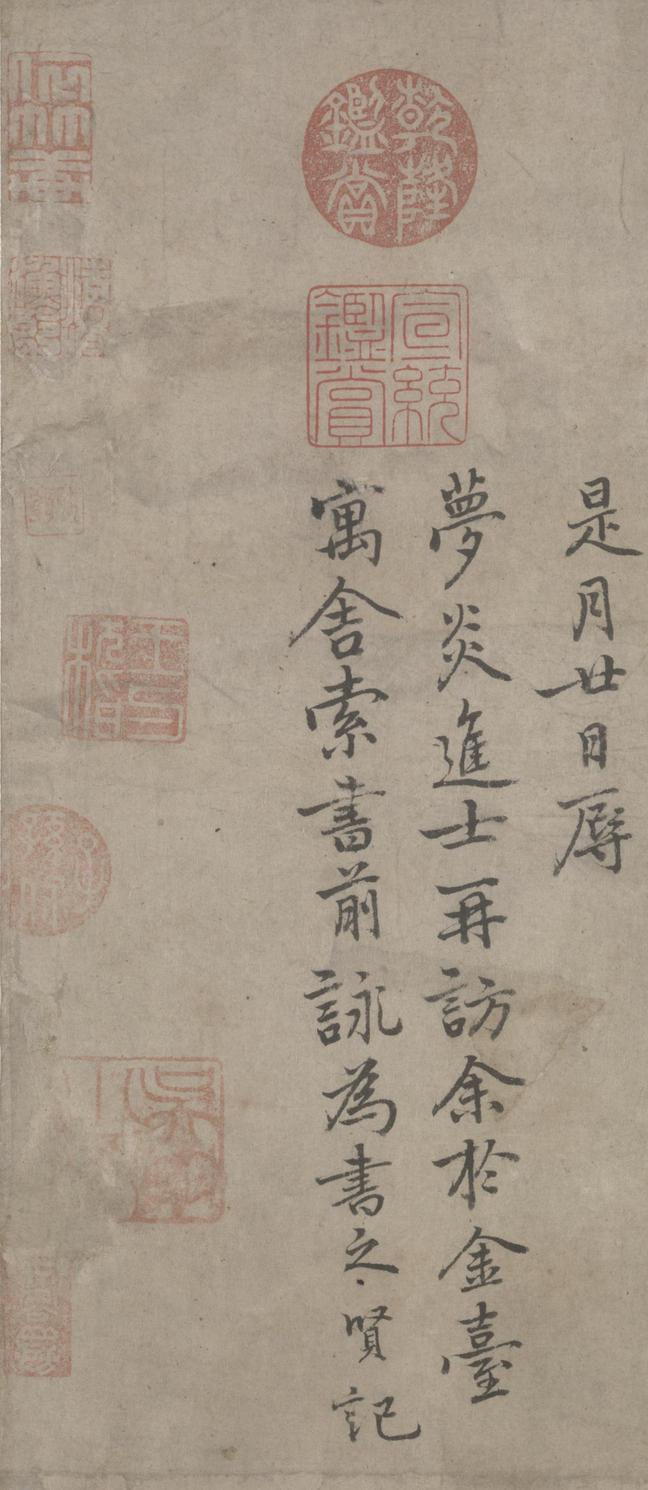 是月廿日辱
夢炎進士再訪余於金臺
寓舍索書前詠為書之賢記
乾隆鑑賞
宣統鑑賞